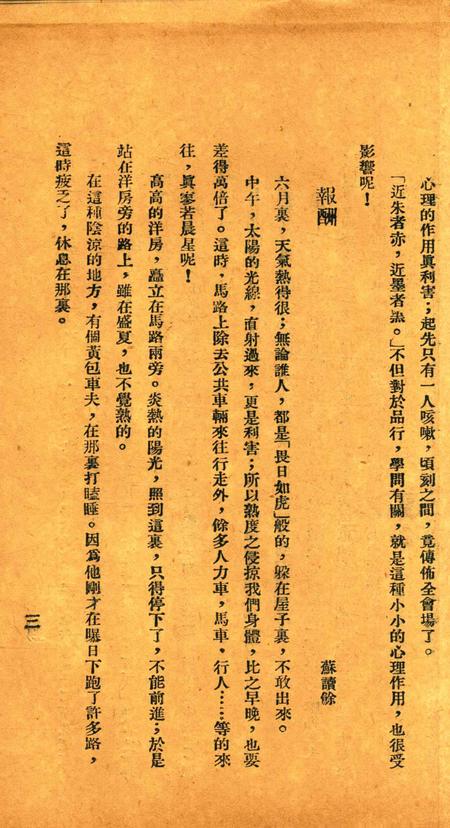 心理的作用眞利害；起先只有一人咳嗽，頃刻之間，竟傳佈全會場了。
「近朱者赤，近墨者黑。」不但對於品行，學問有關，就是這種小小的心理作用，也很受
影響呢！
報酬
蘇讀餘
六月裏，天氣熱得很；無論誰人，都是「畏日如虎」般的，躲在屋子裏，不敢出來。
中午，太陽的光線，直射過來，更是利害；所以熱度之侵掠我們身體，比之早晚，也要
差得萬倍了。這時，馬路上除去公共車輛來往行走外，餘多人力車，馬車，行人……等的來
往，眞寥若晨星呢！
高高的洋房，矗立在馬路兩旁。炎熱的陽光，照到這裏，只得停下了，不能前進；於是
站在洋房旁的路上，雖在盛夏，也不覺熱的。
在這種陰涼的地方，有個黃包車夫，在那裏打瞌睡。因爲他剛才在曝日下跑了許多路，
這時疲乏了，休息在那裏。
三